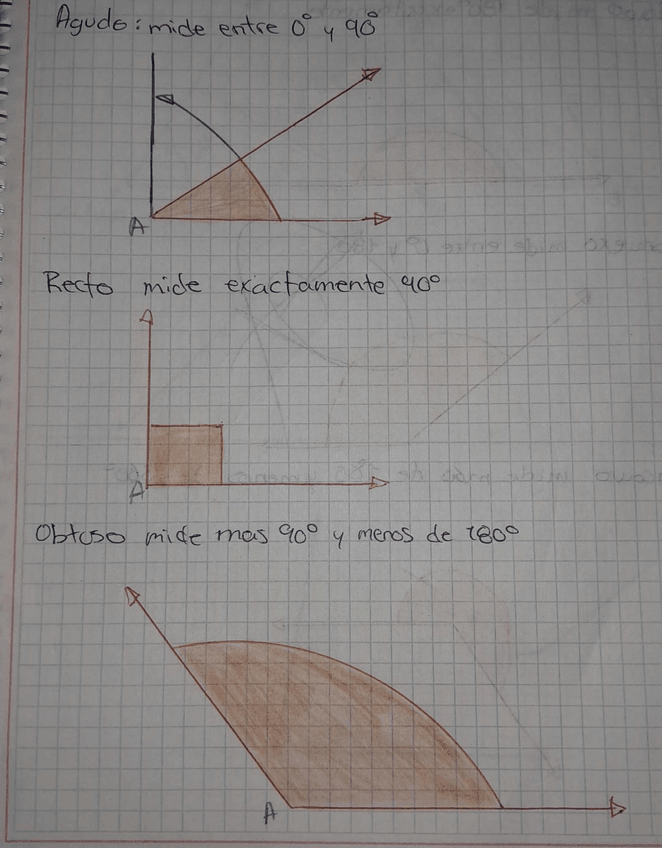 Agudo: mide entre 0° y 90°
A
Recto mide exactamente 90°
A
Obtuso mide mas 90° y menos de 180°
A